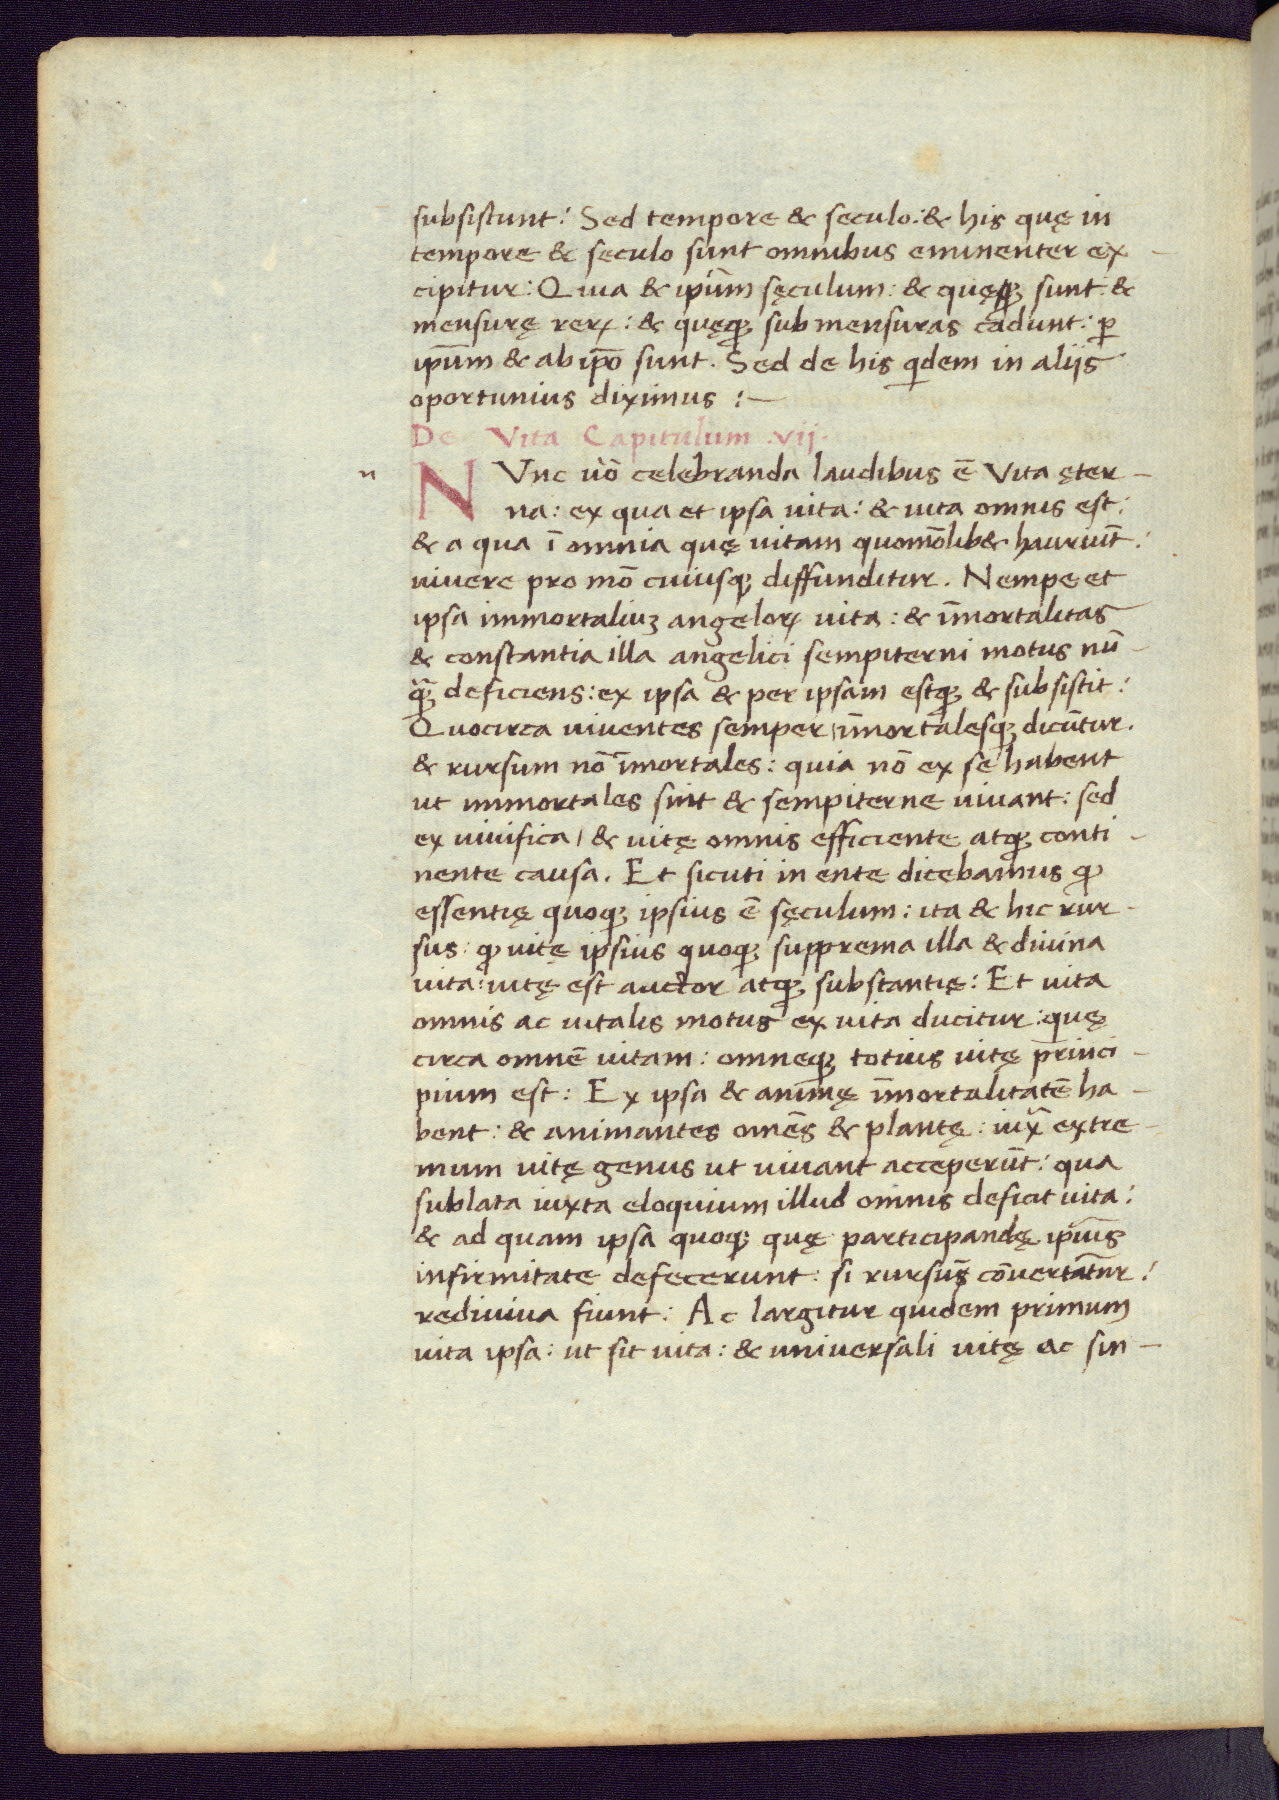 subsistunt: Sed tempore & seculo: & his quę in
tempore & seculo sunt omnibus eminenter ex-
cipitur: Quia & ip̄um sęculum: & quęqꝫ sunt: &
mensurę reꝝ: & quęqꝫ sub mensuras cadunt: ꝑ
ip̄um & ab ip̄o sunt. Sed de his qͥdem in aliis
oportunius diximus :—
De Vita Capitulum .vii.
n NVnc ūo celebranda laudibus ē Vita ęter-
na: ex qua et ipsa uita: & uita omnis est:
& a qua ī omnia quę uitam quomōlib& hauriūt:
uiuere pro mō cuiusqꝫ diffunditur. Nempe et
ipsa immortaliuꝫ angeloꝝ uita: & īmortalitas
& constantia illa angelici sempiterni motus nū-
qꝫ̄ deficiens: ex ipsa & per ipsam estqꝫ & subsistit:
Quocirca uiuentes semper / īmortalesqꝫ dicūtur.
& rursum nō īmortales: quia nō ex se habent
ut immortales sint & sempiterne uiuant: sed
ex uiuifica / & uitę omnis efficiente atqꝫ conti-
nente causa. Et sicuti in ente dicebamus ꝙ
essentię quoqꝫ ipsius ē sęculum: ita & hic rur-
sus: ꝙ uitę ipsius quoqꝫ supprema illa & diuina
uita: uitę est auctor atqꝫ substantię: Et uita
omnis ac uitalis motus ex uita ducitur: quę
circa omnē uitam: omneqꝫ totius uitę princi-
pium est: Ex ipsa & animę īmortalitatē ha-
bent: & animantes omēs & plantę: iux̄ extre-
mum uitę genus ut uiuant acceperūt: qua
sublata iuxta eloquium illud omnis deficit uita:
& ad quam ipsa quoqꝫ quę participandę ip̄ius
infirmitate defecerunt: si rursus cōuertātur:
rediuiua fiunt: Ac largitur quidem primum
uita ipsa: ut sit uita: & uniuersali uitę ac sin-